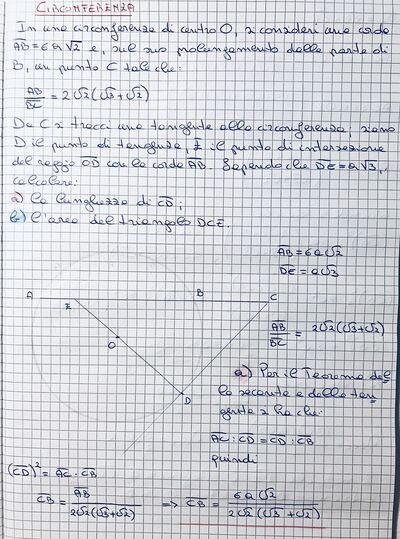 CIRCONFERENZA
In una circonferenza di centro O, si consideri una corda
AB=6a√2 e, sul suo prolungamento dalla parte di
B, un punto C tale che:
AB/BC = 2√2(√3+√2)
Da C si tracci una tangente alla circonferenza, siano
D il punto di tangenza, E il punto di intersezione
del raggio OD con la corda AB. Sapendo che DE=a√3,
calcolare:
a) la lunghezza di CD;
b) l'area del triangolo DCE.
AB=6a√2
DE=a√3
A E B C
O
D
AB/BC = 2√2(√3+√2)
a) Per il Teorema del
la secante e della tan
gente si ha che:
AC:CD=CD:CB
quindi
(CD)²=AC·CB
CB= AB/2√2(√3+√2) ⇒ CB= 6a√2/2√2(√3+√2)